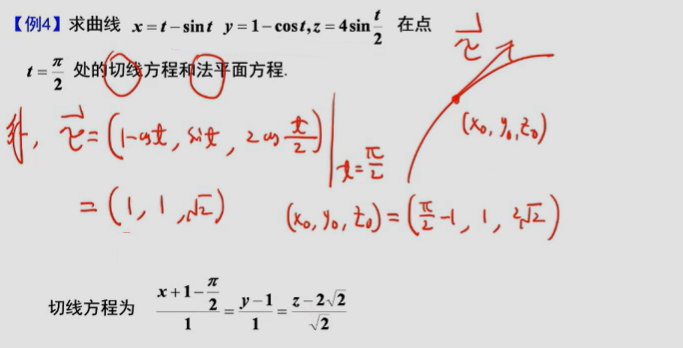 【例4】求曲线 x=t−sint y=1−cost,z=4sin t/2 在点
t=π/2 处的切线方程和法平面方程.
τ
解, τ=(1-cost, sint, 2cos t/2)|t=π/2
(x₀, y₀, z₀)
=(1, 1, √2)
(x₀, y₀, z₀)=(π/2-1, 1, 2√2)
切线方程为 (x+1−π/2)/1=(y−1)/1=(z−2√2)/√2